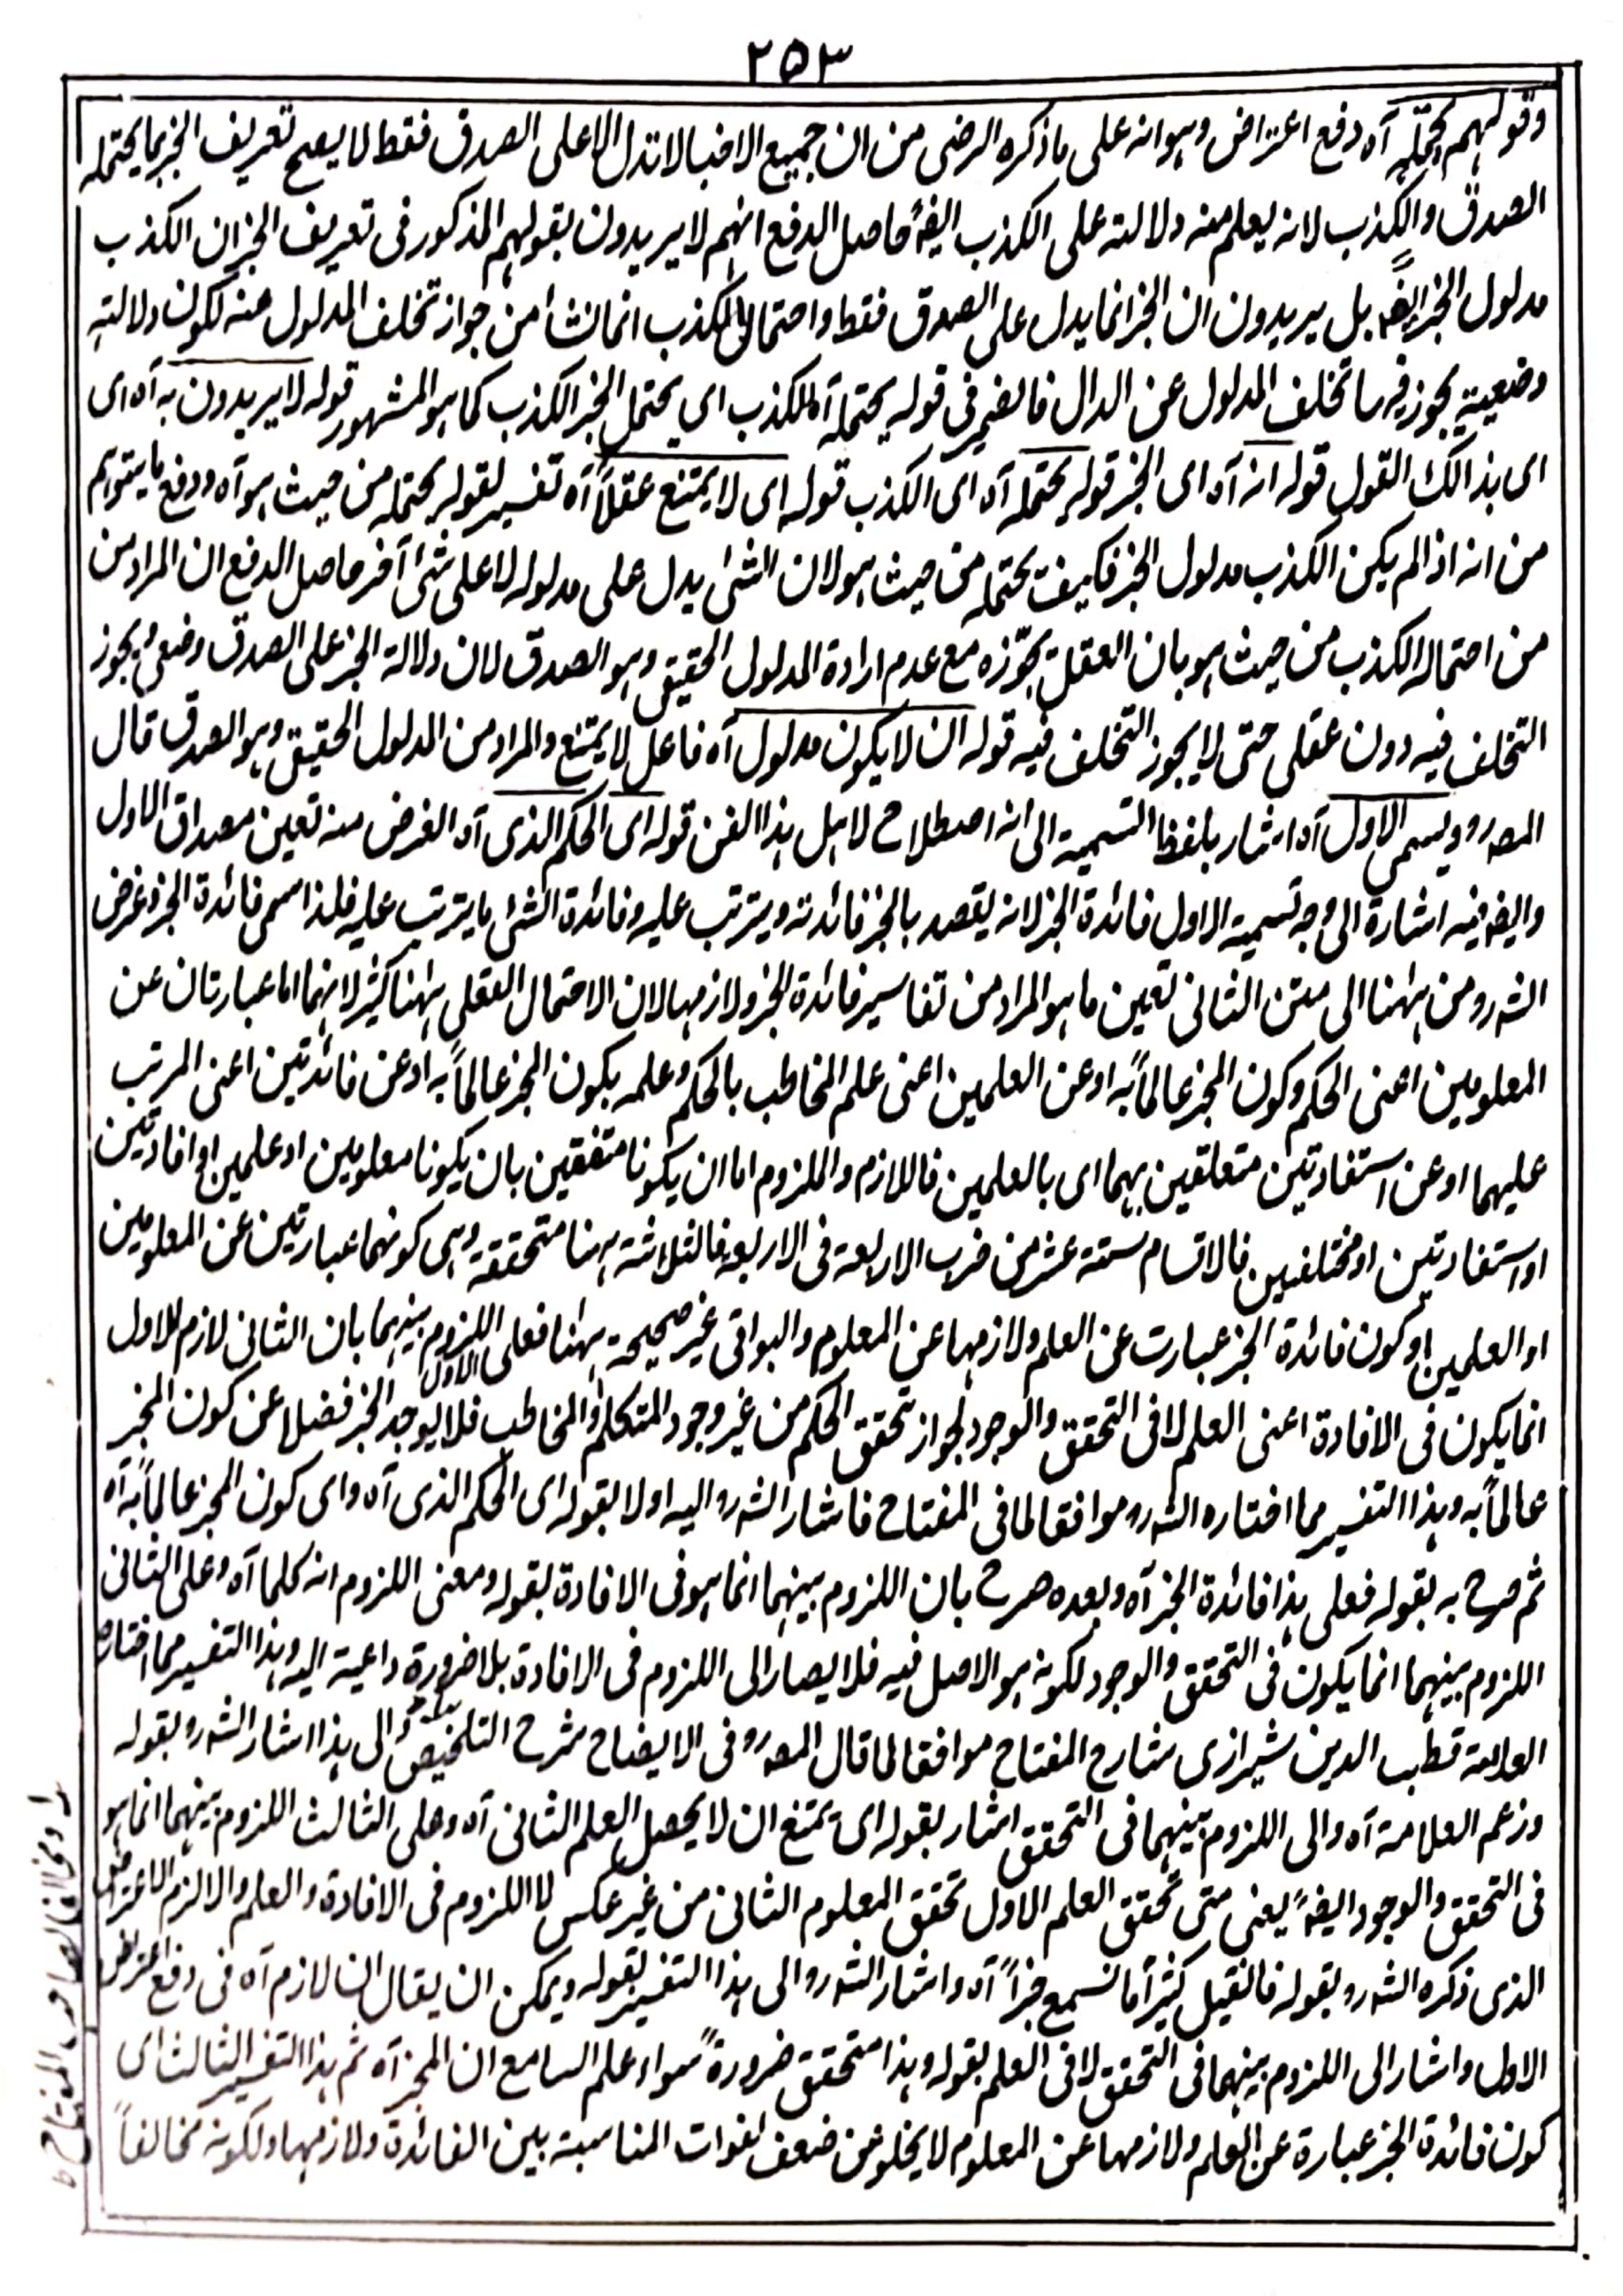 ٢٥٣
وقولهم يحتمله آه دفع اعتراض وهو انه على ما ذكره الرضى من ان جميع الاخبار لا تدل الا على الصدق فقط لا يصح تعريف الخبر بما يحتمله
الصدق والكذب لانه يعلم منه دلالته على الكذب ايضاً حاصل الدفع انهم لا يريدون بقولهم المذكور فى تعريف الخبر ان الكذب
مدلول الخبر ايضاً بل يريدون ان الخبر انما يدل على الصدق فقط واحتماله للكذب انما نشأ من جواز تخلف المدلول عنه لكون دلالته
وضعية يجوز فيها تخلف المدلول عن الدال فالضمير فى قوله يحتمله آه للكذب اى يحتمل الخبر الكذب كما هو المشهور قوله لا يريدون به آه اى
اى بذالك القول قوله انه آه اى الخبر قوله يحتمله آه اى الكذب قوله اى لا يمتنع عقلاً آه تفسير لقوله يحتمله من حيث هو آه ودفع ما يتوهم
من انه اذا لم يكن الكذب مدلول الخبر فكيف يحتمله من حيث هو لان الشئ يدل على مدلوله لا على شئ آخر حاصل الدفع ان المراد من
من احتماله الكذب من حيث هو بان العقل يجوّزه مع عدم ارادة المدلول الحقيقى وهو الصدق لان دلالة الخبر على الصدق وضعى يجوز
التخلف فيه دون عقلى حتى لا يجوز التخلف فيه قوله ان لا يكون مدلول آه فاعل لا يمتنع والمراد من المدلول الحقيقى وهو الصدق قال
المصرو ويسمى الاول آه اشار بلفظ التسمية الى انه اصطلاح لاهل هذا الفن قوله اى الحكم الذى آه الغرض منه تعين مصداق الاول
وايضا فيه اشارة الى وجه تسمية الاول فائدة الخبر لانه يقصد بالخبر فائدته ويترتب عليه وفائدة الشئ ما يترتب عليه فلذا سمى فائدة الخبر وغرض
الشرو من ههنا الى متن الثانى تعين ما هو المراد من تفاسير فائدة الخبر ولازمها لان الاحتمال العقلى ههنا كثير لانهما اما عبارتان عن
المعلومين اعنى الحكم وكون المخبر عالماً به او عن العلمين اعنى علم المخاطب بالحكم وعلمه بكون المخبر عالماً به او عن فائدتين اعنى المرتب
عليهما او عن استفادتين متعلقين بهما اى بالعلمين فاللازم والملزوم اما ان يكونا متفقين بان يكونا معلومين او علمين او افادتين
او استفادتين او مختلفين فالاقسام ستة عشر من ضرب الاربعة فى الاربعة فالثلاثة ههنا متحققة وهى كونهما عبارتين عن المعلومين
او العلمين او كون فائدة الخبر عبارت عن العلم ولازمها عن المعلوم والبواقى غير صحيحة ههنا فعلى الاول اللزوم بينهما بان الثانى لازم للاول
انما يكون فى الافادة اعنى العلم لا فى التحقق والوجود لجواز تحقق الحكم من غير وجود المتكلم والمخاطب فلا يوجد الخبر فضلا عن كون المخبر
عالماً به وهذا التفسير مما اختاره الشرو موافقا لما فى المفتاح فاشار الشرو اليه اولا بقوله اى الحكم الذى آه واى كون المخبر عالماً به آه
ثم صرح به بقوله فعلى هذا فائدة الخبر آه وبعده صرح بان اللزوم بينهما انما هو فى الافادة بقوله ومعنى اللزوم انه كلما آه وعلى الثانى
اللزوم بينهما انما يكون فى التحقق والوجود لكونه هو الاصل فيه فلا يصار الى اللزوم فى الافادة بلا ضرورة داعية اليه وهذا التفسير مما اختاره
العلامة قطب الدين شيرازى شارح المفتاح موافقا لما قال المصرو فى الايضاح شرح التلخيص والى هذا اشار الشرو بقوله
وزعم العلامة آه والى اللزوم بينهما فى التحقق اشار بقوله اى يمتنع ان لا يحصل العلم الثانى آه وعلى الثالث اللزوم بينهما انما هو
فى التحقق والوجود ايضاً يعنى متى تحقق العلم الاول تحقق المعلوم الثانى من غير عكس لا اللزوم فى الافادة والعلم والا لزم الاعتراض
الذى ذكره الشرو بقوله فان قيل كثيراً ما نسمع خبراً آه واشار الشرو الى هذا التفسير بقوله ويمكن ان يقال ان لازم آه فى دفع اعتراض
الاول واشار الى اللزوم بينهما فى التحقق لا فى العلم بقوله وهذا متحقق ضرورةً سواء علم السامع ان المخبر آه ثم هذا التفسير الثالث اى
كون فائدة الخبر عبارة عن العلم ولازمها عن المعلوم لا يخلو عن ضعف لفوات المناسبة بين الفائدة ولازمها ولكونه مخالفاً